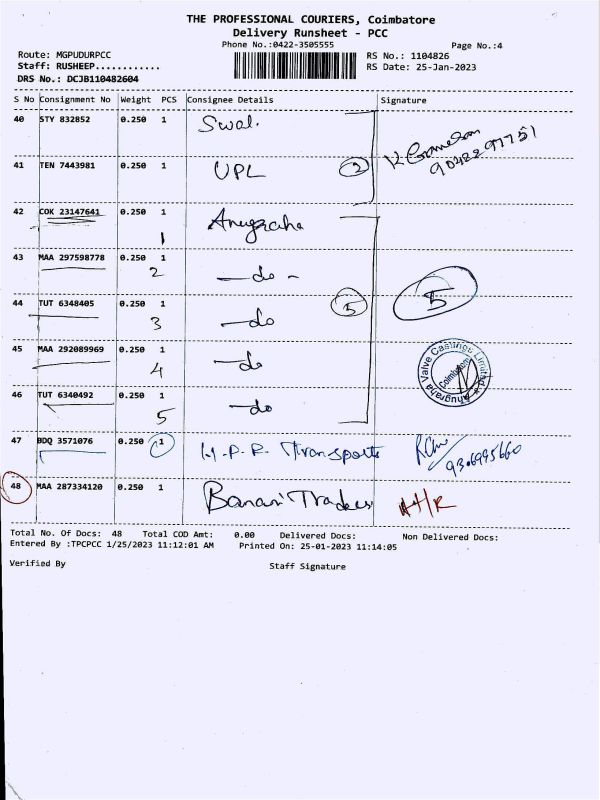 THE PROFESSIONAL COURIERS, Coimbatore
Delivery Runsheet - PCC
Phone No.:0422-3505555 Page No.:4
Route: MGPUDURPCC RS No.: 1104826
Staff: RUSHEEP............ RS Date: 25-Jan-2023
DRS No.: DCJB110482604
S No Consignment No Weight PCS Consignee Details Signature
40 STY 832852 0.250 1 Swal.
41 TEN 7443981 0.250 1 UPL 2
42 COK 23147641 0.250 1 Anugraha
1
43 MAA 297598778 0.250 1 —do-
2
5
5
44 TUT 6348405 0.250 1 —do
3
45 MAA 292089969 0.250 1 —do
4
Anugraha Valve Castings Limited
Coimbatore
46 TUT 6340492 0.250 1 —do
5
47 BDQ 3571076 0.250 1 Transports
48 MAA 287334120 0.250 1 Banari Traders
Total No. Of Docs: 48 Total COD Amt: 0.00 Delivered Docs: Non Delivered Docs:
Entered By :TPCPCC 1/25/2023 11:12:01 AM Printed On: 25-01-2023 11:14:05
Verified By Staff Signature